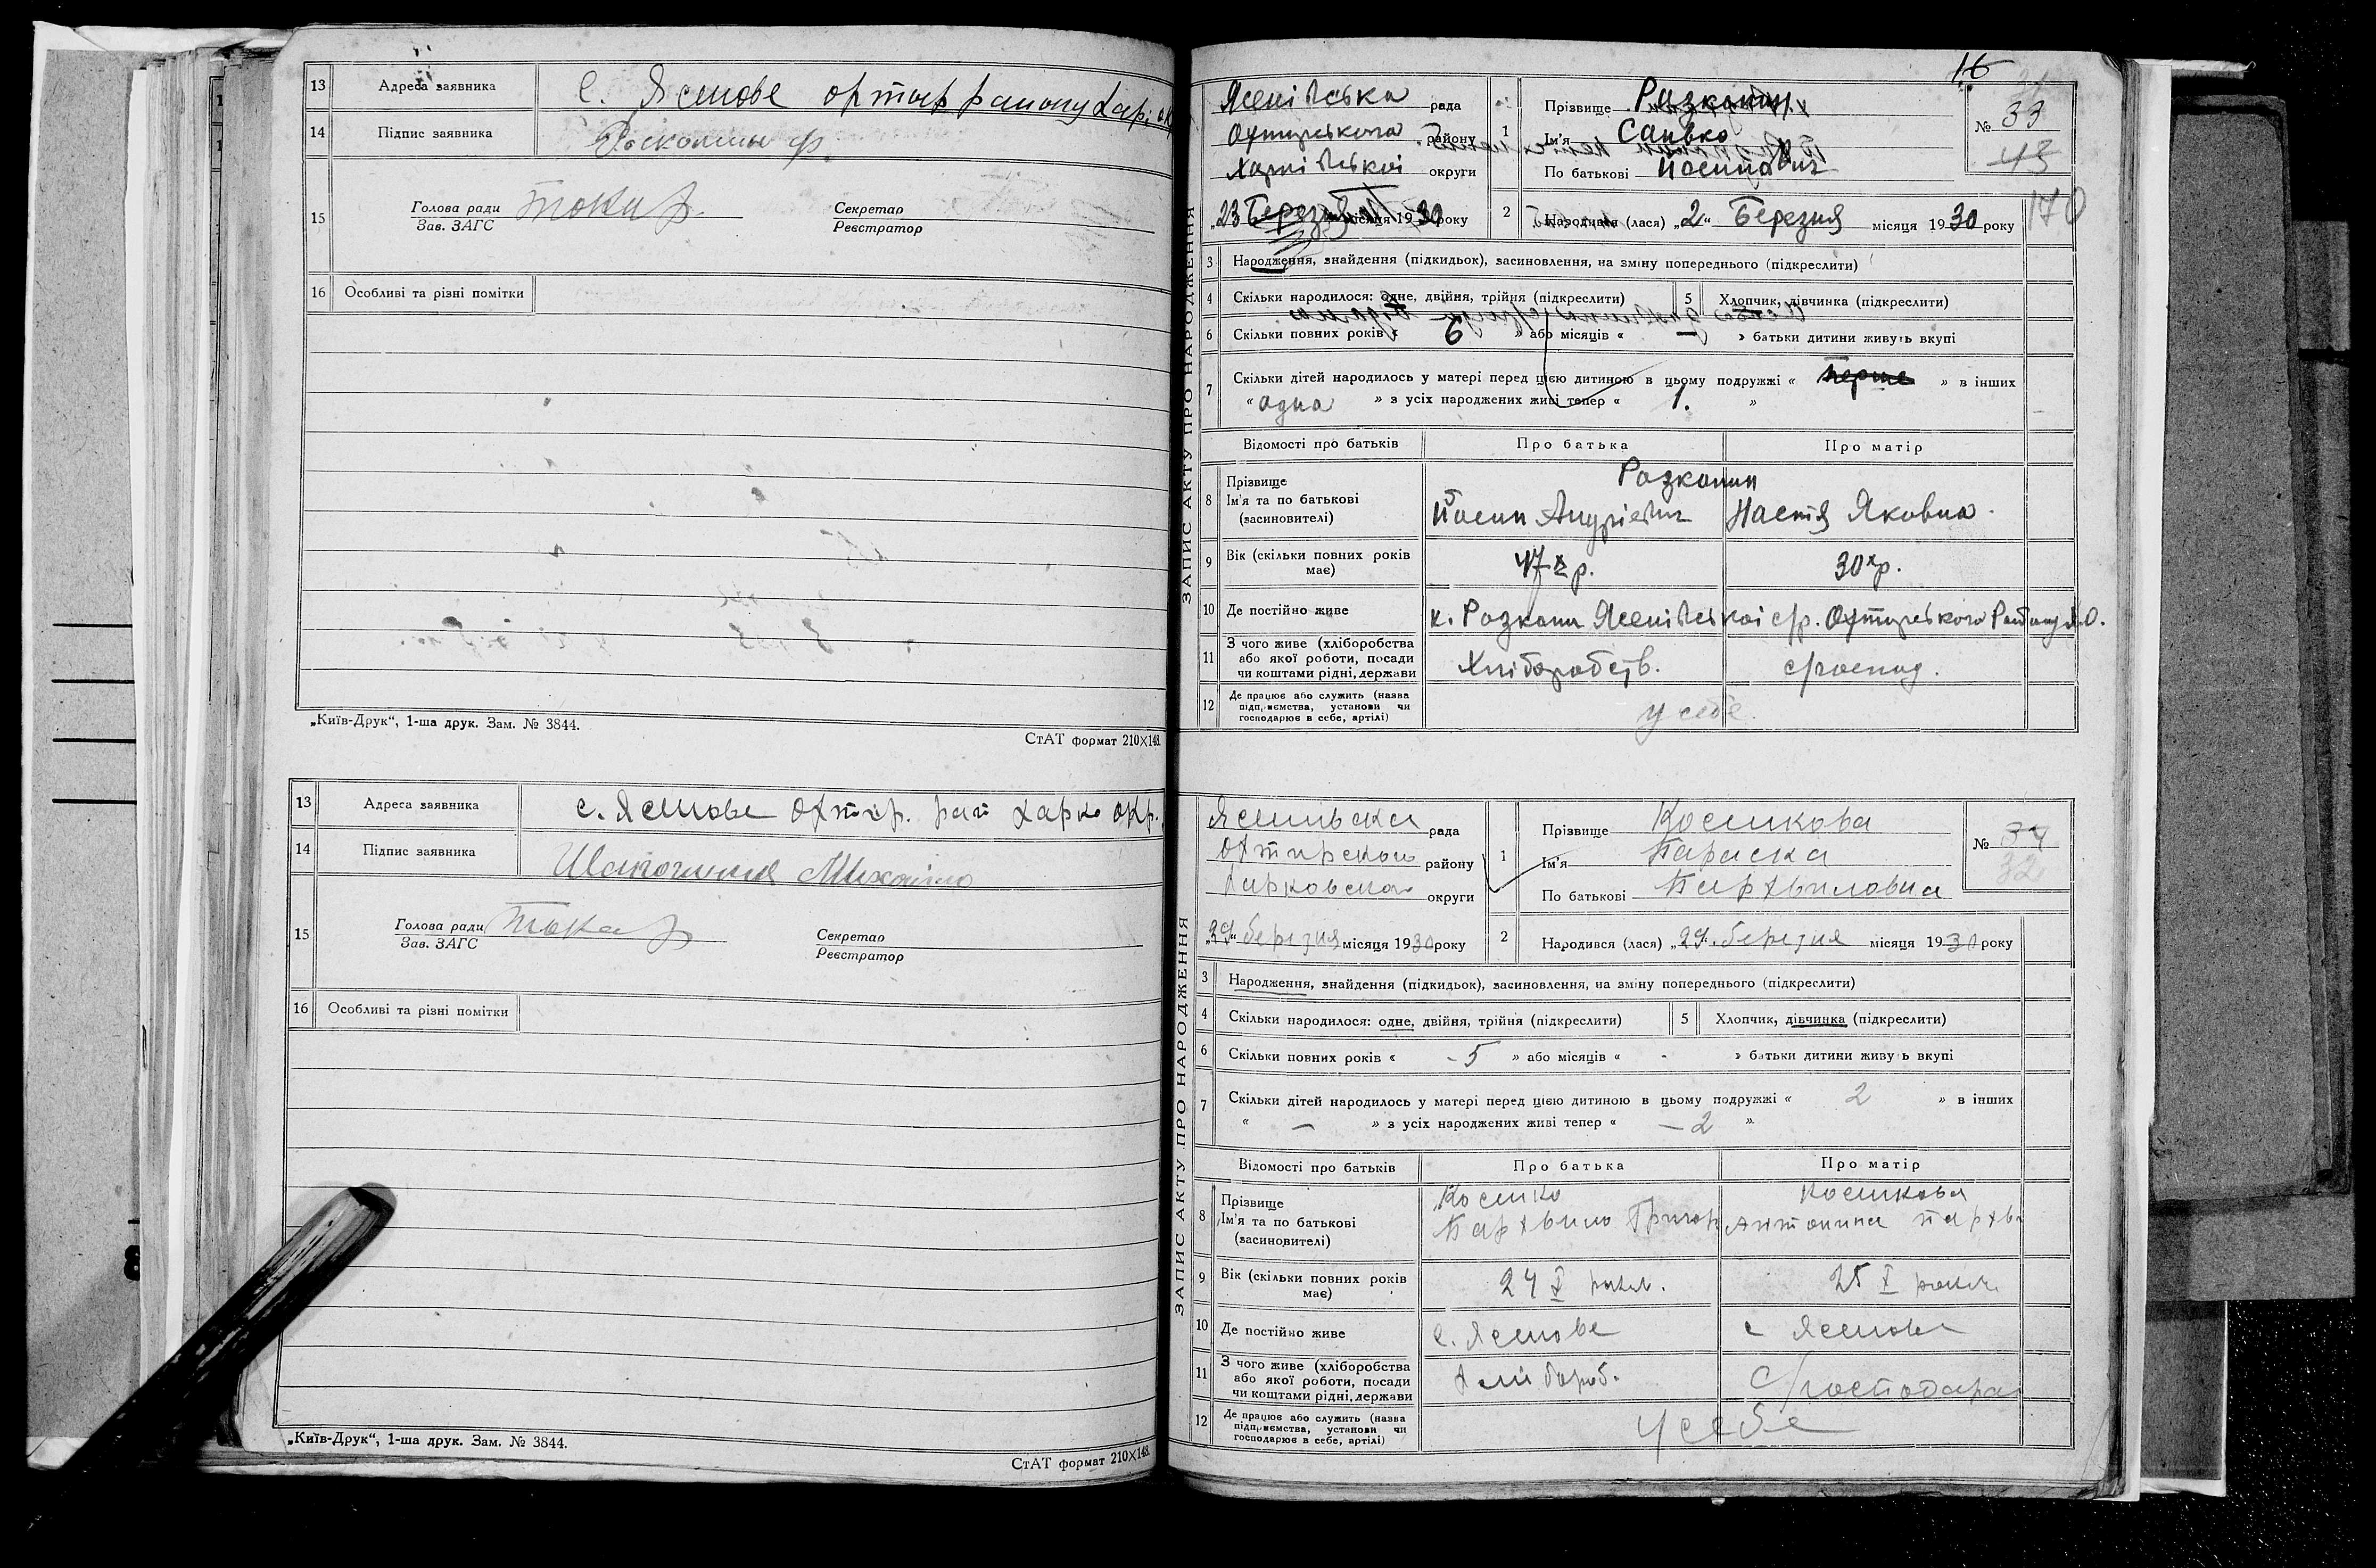 13 Адреса заявника с. Ясенове
14 Підпис заявника
15 Голова ради Токар Секретар
Зав. ЗАГС Реєстратор
16 Особливі та різні помітки
„Київ-Друк“, 1-ша друк. Зам. № 3844.
СтАТ формат 210×148.
13 Адреса заявника с. Ясенове Охтир. рай Харк. окр.
14 Підпис заявника Михайло
15 Голова ради Токар Секретар
Зав. ЗАГС Реєстратор
16 Особливі та різні помітки
„Київ-Друк“, 1-ша друк. Зам. № 3844.
СтАТ формат 210×148.
16
ЗАПИС АКТУ ПРО НАРОДЖЕННЯ
Ясенівська рада
Охтирського району
Харківської округи
„23 Березня місяця 1930 року
1 Прізвище
Ім'я Савко
По батькові Йосипович
№ 33
43
170
2 Народився (лася) „2“ Березня місяця 1930 року
3 Народження, знайдення (підкидьок), засиновлення, на зміну попереднього (підкреслити)
4 Скільки народилося: одне, двійня, трійня (підкреслити) 5 Хлопчик, дівчинка (підкреслити)
6 Скільки повних років « 6 » або місяців « — » батьки дитини живуть вкупі
7 Скільки дітей народилось у матері перед цією дитиною в цьому подружжі « перше » в інших
« одна » з усіх народжених живі тепер « 1. »
Відомості про батьків Про батька Про матір
8 Прізвище
Ім'я та по батькові
(засиновителі)
Йосип Андрієвич Настя Яковна
9 Вік (скільки повних років має) 47 х р. 30 х р.
10 Де постійно живе х. Ясенівської с/р. Охтирського Району Х.О.
11 З чого живе (хліборобства або якої роботи, посади чи коштами рідні, держави Хліборобств. с/господ.
12 Де працює або служить (назва підприємства, установи чи господарює в себе, артілі) у себе.
ЗАПИС АКТУ ПРО НАРОДЖЕННЯ
рада
району
округи
„29“ березня місяця 1930 року
1 Прізвище Косикова
Ім'я Параска
По батькові Пархвиловна
№ 34
32
2 Народився (лася) „29“ березня місяця 1930 року
3 Народження, знайдення (підкидьок), засиновлення, на зміну попереднього (підкреслити)
4 Скільки народилося: одне, двійня, трійня (підкреслити) 5 Хлопчик, дівчинка (підкреслити)
6 Скільки повних років « -5 » або місяців « - » батьки дитини живуть вкупі
7 Скільки дітей народилось у матері перед цією дитиною в цьому подружжі « 2 » в інших
« — » з усіх народжених живі тепер « — 2 »
Відомості про батьків Про батька Про матір
8 Прізвище Косико Косикова
Ім'я та по батькові Пархвило Григор Антонина Пархв
(засиновителі)
9 Вік (скільки повних років має) 24 х 25 х
10 Де постійно живе с. Ясенове с Ясенове
11 З чого живе (хліборобства або якої роботи, посади чи коштами рідні, держави Хлібороб. с/господара
12 Де працює або служить (назва підприємства, установи чи господарює в себе, артілі) у себе